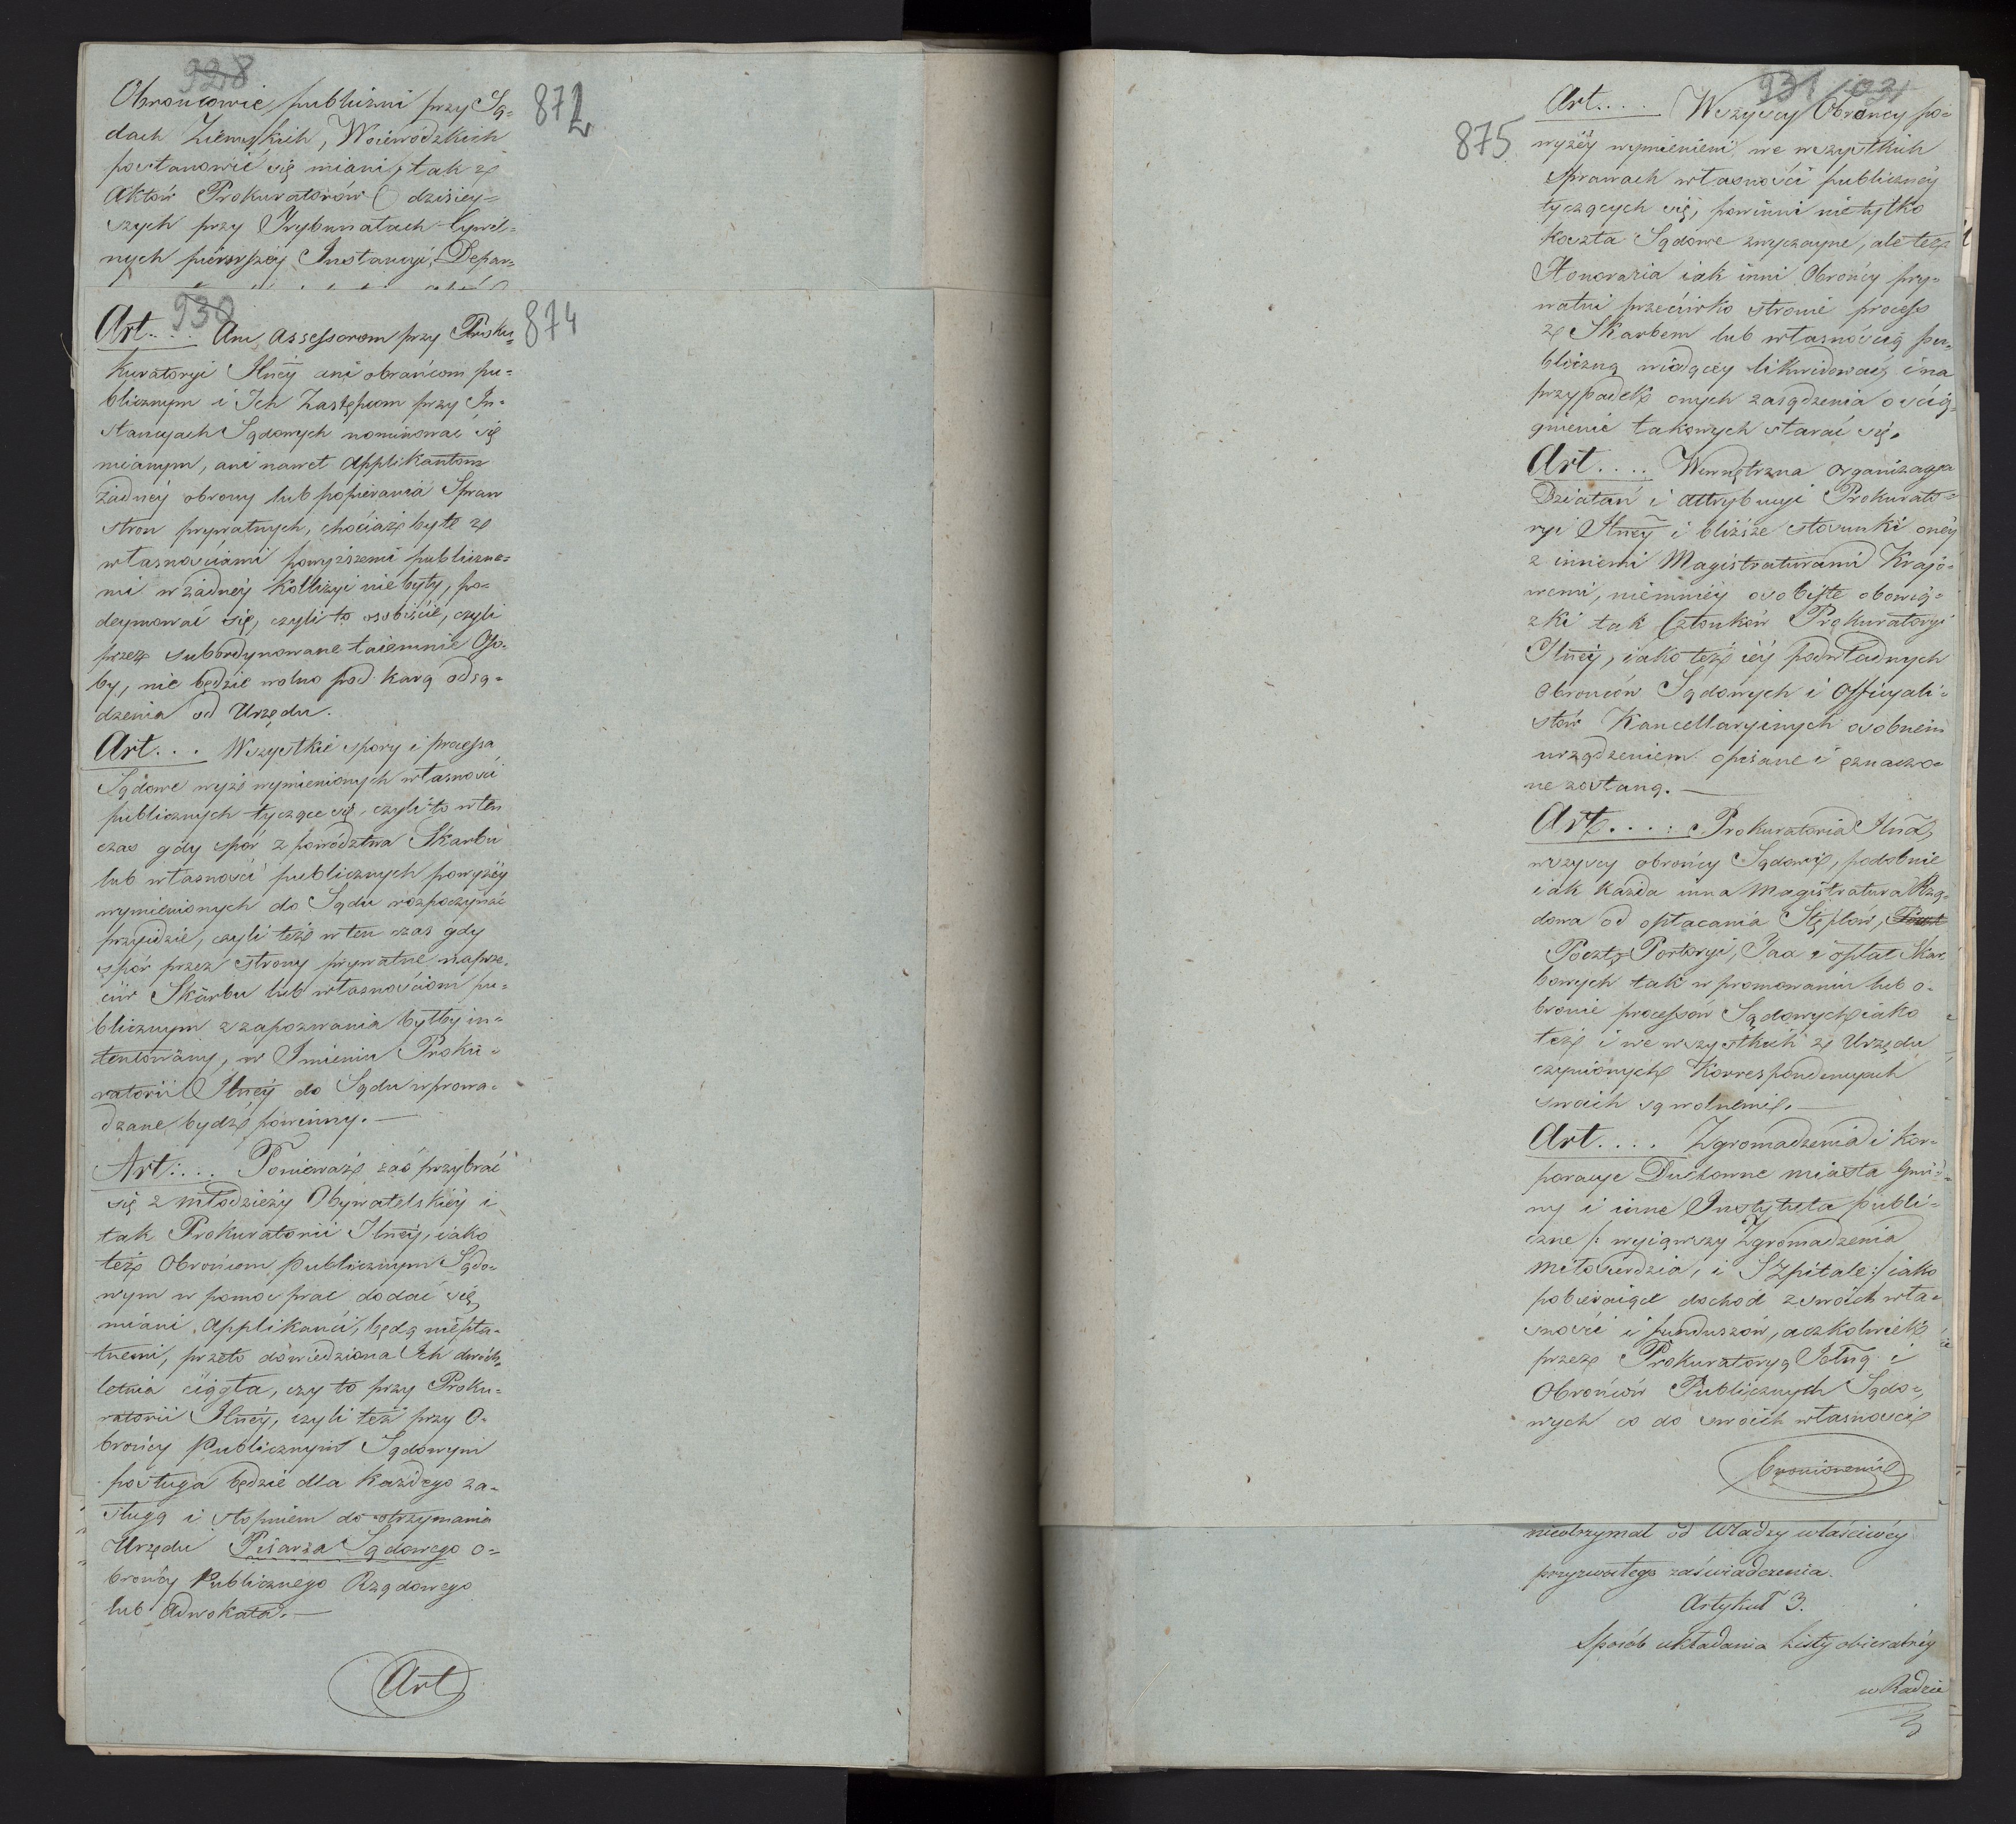 928
872
Obroncowie publiczni przy Są-
dach Ziemskich, Woiewódzkich
postanowić się miani, tak z
Aktów Prokuratorów dzisiey-
szych przy Trybunałach Cywil-
nych pierwszey Instancyi, Depar-
930
874
Art.... Ani Assessorom przy Proku-
kuratoryi Jlnéy ani obrońcom pu-
blicznym i Ich Zastępcom przy In-
stancyach Sądowych nominować się
mianym, ani nawet Applikantom
żadnéy obrony lub popierania Spraw
stron prywatnych, chociażby te z
własnościami powyższemi publiczne-
mi w żadnéy kollizyi nie były, po-
deymować się, czyli to osobiście, czyli
przez subordynowane taiemnie Oso-
by, nie będzie wolno pod karą odsą-
dzenia od Urzędu.
Art... Wszystkie spory i processa
Sądowe wyż wymienionych własności
publicznych tyczące się, czyli to w ten
czas gdy spór z powództwa Skarbu
lub własności publicznych powyżéy
wymienionych do Sądu rozpoczynać
przyidzie, czyli też w ten czas gdy
spór przez strony prywatne naprze-
ciw Skarbu lub własnościom pu-
blicznym z zapozwania byłby in-
tentowany, w Imieniu Proku-
ratorii Jlnéy do Sądu wprowa-
dzane bydź powinny.—
Art:... Ponieważ zaś przybrać
się z młodzieży Obywatelskiéy i
tak Prokuratorii Jlnéy, iako
też Obrońcom Publicznym Sądo-
wym w pomoc prac dodać się
miani Applikanci, będą niepła-
tnemi, przeto dowiedziona Ich dwóch-
letnia ciągła, czy to przy Proku-
ratorii Jlnéy, czyli też przy O-
brońcy Publicznym Sądowym
posługa będzie dla każdego za-
sługą i stopniem do otrzymania
Urzędu Pisarza Sądowego O-
brońcy Publicznego Rządowego
lub Adwokata.—
Art
931
875
Art.... Wszyscy Obrońcy po-
wyżéy wymienieni we wszystkich
Sprawach własności publicznéy
tyczących się, powinni nietylko
koszta Sądowe zwyczayne, ale też
Honoraria iak inni Obrońcy pry-
watni przeciwko stronie process
z Skarbem lub własnością pu-
bliczną wiodącéy likwidować, i na
przypadek onych zasądzenia o ścią-
gnienie takowych starać się.
Art.... Wewnętrzna organizacya
Działań i Attrybucyi Prokurato-
ryi Jlnéy i bliższe stosunki onéy
z innemi Magistraturami Krajo-
wemi, niemniéy osobiste obowią-
zki tak Członków Prokuratoryi
Jlnéy, iako też iéy podwładnych
Obrońców Sądowych i Officyali-
stów Kancellaryinych osobnem
urządzeniem opisane i oznaczo-
ne zostaną.—
Art....: Prokuratoria Jlna,
wszyscy obrońcy Sądowi, podobnie
iak każda inna Magistratura Rzą-
dowa od opłacania Stęplów,
Poczty Portoryi, Tax i opłat Skar-
bowych tak w promowaniu lub o-
bronie processów Sądowych iako
też i we wszystkich z Urzędu
czynionych Korrespondencyach
swoich są wolnemi.—
Art.... Zgromadzenia i Kor-
poracye Duchowne miasta Gmi-
ny i inne Instytuta publi-
czne /: wyiąwszy Zgromadzenia
Miłosierdzia, i Szpitale:/ iako
pobieraiące dochod z swoich wła-
sności i funduszów, aczkolwiek
przez Prokuratoryą Jolną i
Obrońców Publicznych Sądo-
wych co do swoich własności
bronionemi
nieotrzymał od Władzy właściwéy
przyzwoitego zaświadczenia.
Artykuł 3.
Sposób układania Listy obieralnéy
w Radzie